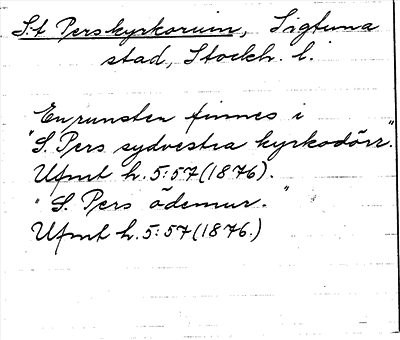 S:t Perskyrkoruin, Sigtuna
stad, Stockh. l.
En runsten finnes i
"S. Pers sydvestra kyrkodörr."
Ufmt h. 5:57 (1876).
"S. Pers ödemur."
Ufmt h. 5:57 (1876.)